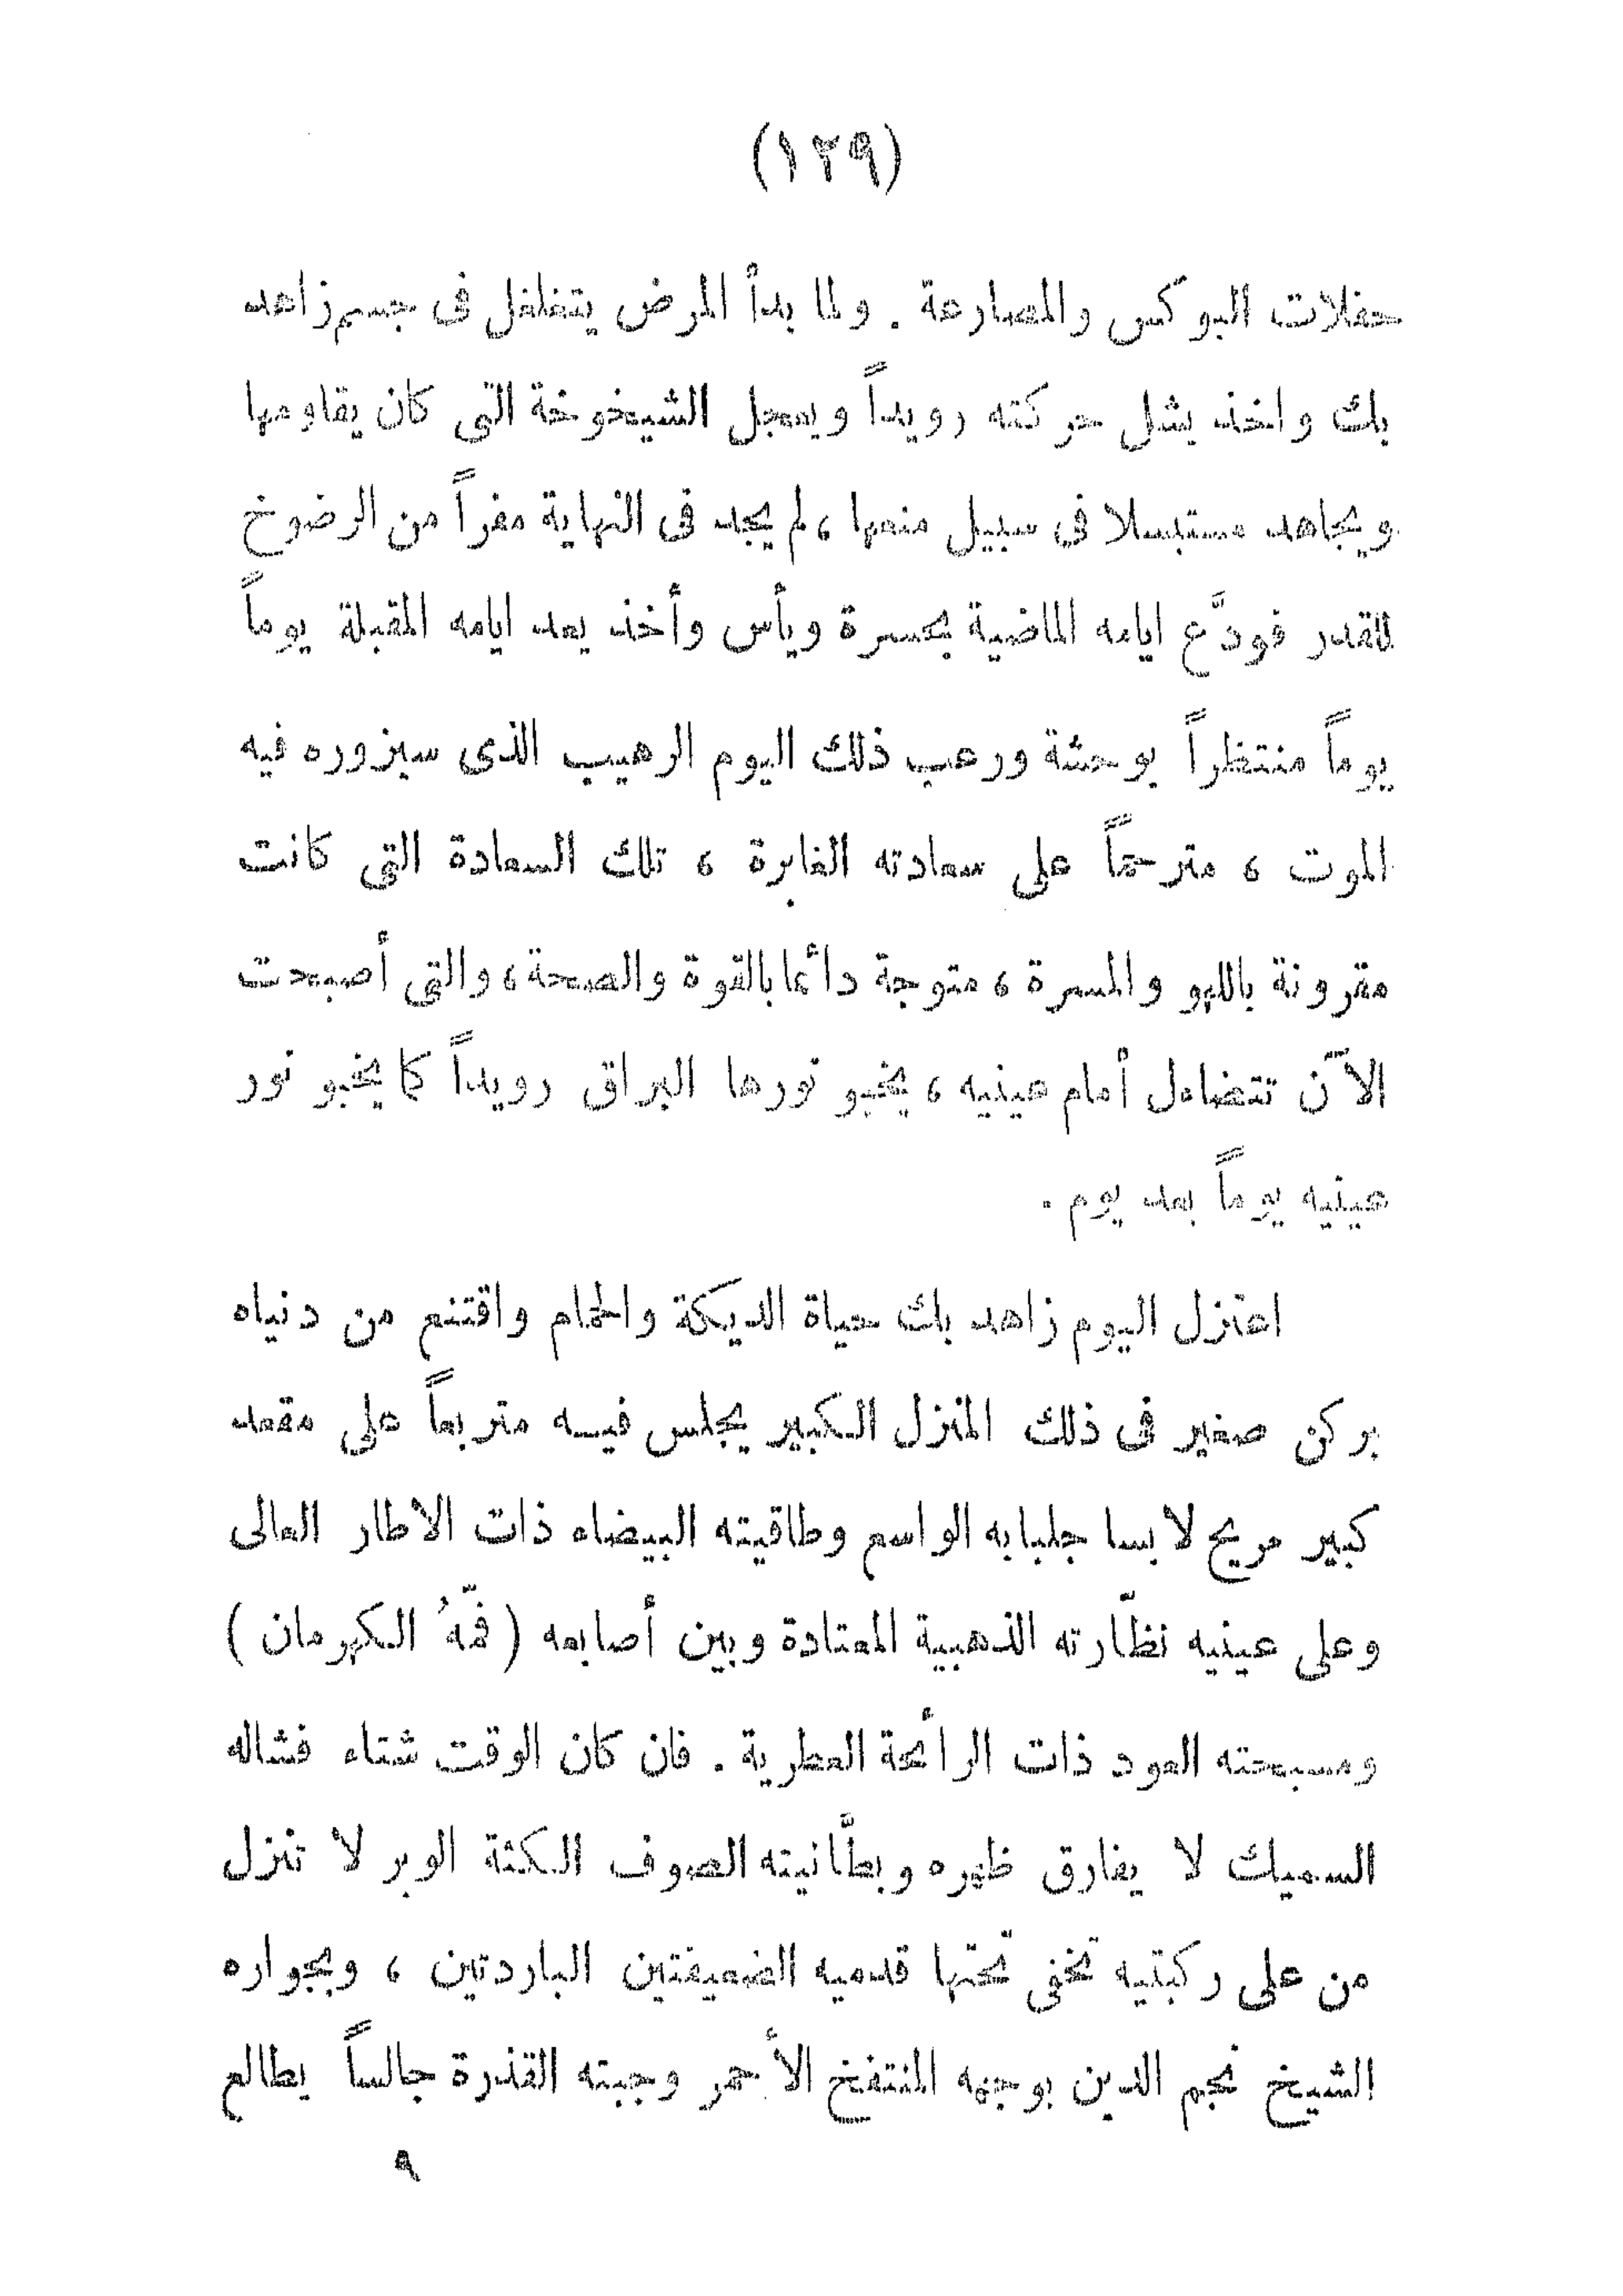 (١٢٩)
حفلات البوكس والمصارعة . ولما بدأ المرض يتغلغل فى جسم زاهد
بك واخذ يشل حركته رويداً ويعجل الشيخوخة التى كان يقاومها
ويجاهد مستبسلا فى سبيل منعها ، لم يجد فى النهاية مفراً من الرضوخ
للقدر فودَّع ايامه الماضية بحسرة ويأس وأخذ يعد ايامه المقبلة يوماً
يوماً منتظراً بوحشة ورعب ذلك اليوم الرهيب الذى سيزوره فيه
الموت ، مترحماً على سعادته الغابرة ، تلك السعادة التى كانت
مقرونة باللهو والمسرة ، متوجة دائما بالقوة والصحة ، والتى أصبحت
الآن تتضاءل أمام عينيه ، يخبو نورها البراق رويداً كما يخبو نور
عينيه يوماً بعد يوم .
اعتزل اليوم زاهد بك حياة الديكة والحمام واقتنع من دنياه
بركن صغير فى ذلك المنزل الكبير يجلس فيه متربعاً على مقعد
كبير مريح لابسا جلبابه الواسع وطاقيته البيضاء ذات الاطار العالى
وعلى عينيه نظّارته الذهبية المعتادة وبين أصابعه ( فمّهُ الكهرمان )
ومسبحته العود ذات الرائحة العطرية . فان كان الوقت شتاء فشاله
السميك لا يفارق ظهره وبطَّانيته الصوف الكثة الوبر لا تنزل
من على ركبتيه تخفى تحتها قدميه الضعيفتين الباردتين ، وبجواره
الشيخ نجم الدين بوجهه المنتفخ الأحمر وجبته القذرة جالساً يطالع
٩